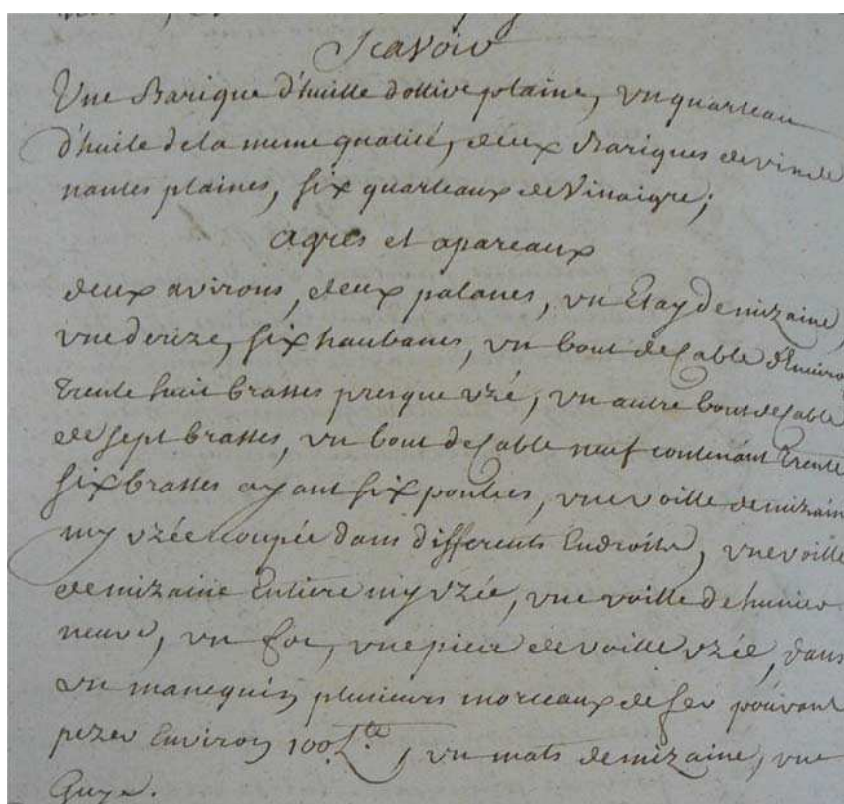 Scavoir
Une Barique d'huille d'ollive plaine, un quarteau
d'huile de la meme qualité, deux Bariques de vin de
nantes plaines, six quarteaux de Vinaigre;
agres et apareaux
deux avirons, deux palans, un Etay de mizaine,
une drize, six haubans, un bout de Cable d'Enviro
trente huit brasses presque uzé, un autre bout de Cable
de sept brasses, un bout de Cable neuf contenant trente
six brasses ayant six poulies, une voille de mizain
my uzée coupée dans differents Endroits, une voille
de mizaine Entiere my uzée, une voille de hunier
neuve, un foc, une piece de voille uzée, dans
un manequin plusieurs morceaux de fer pouvant
pezer Environ 100 L.te, un mats de mizaine, une
Guye.